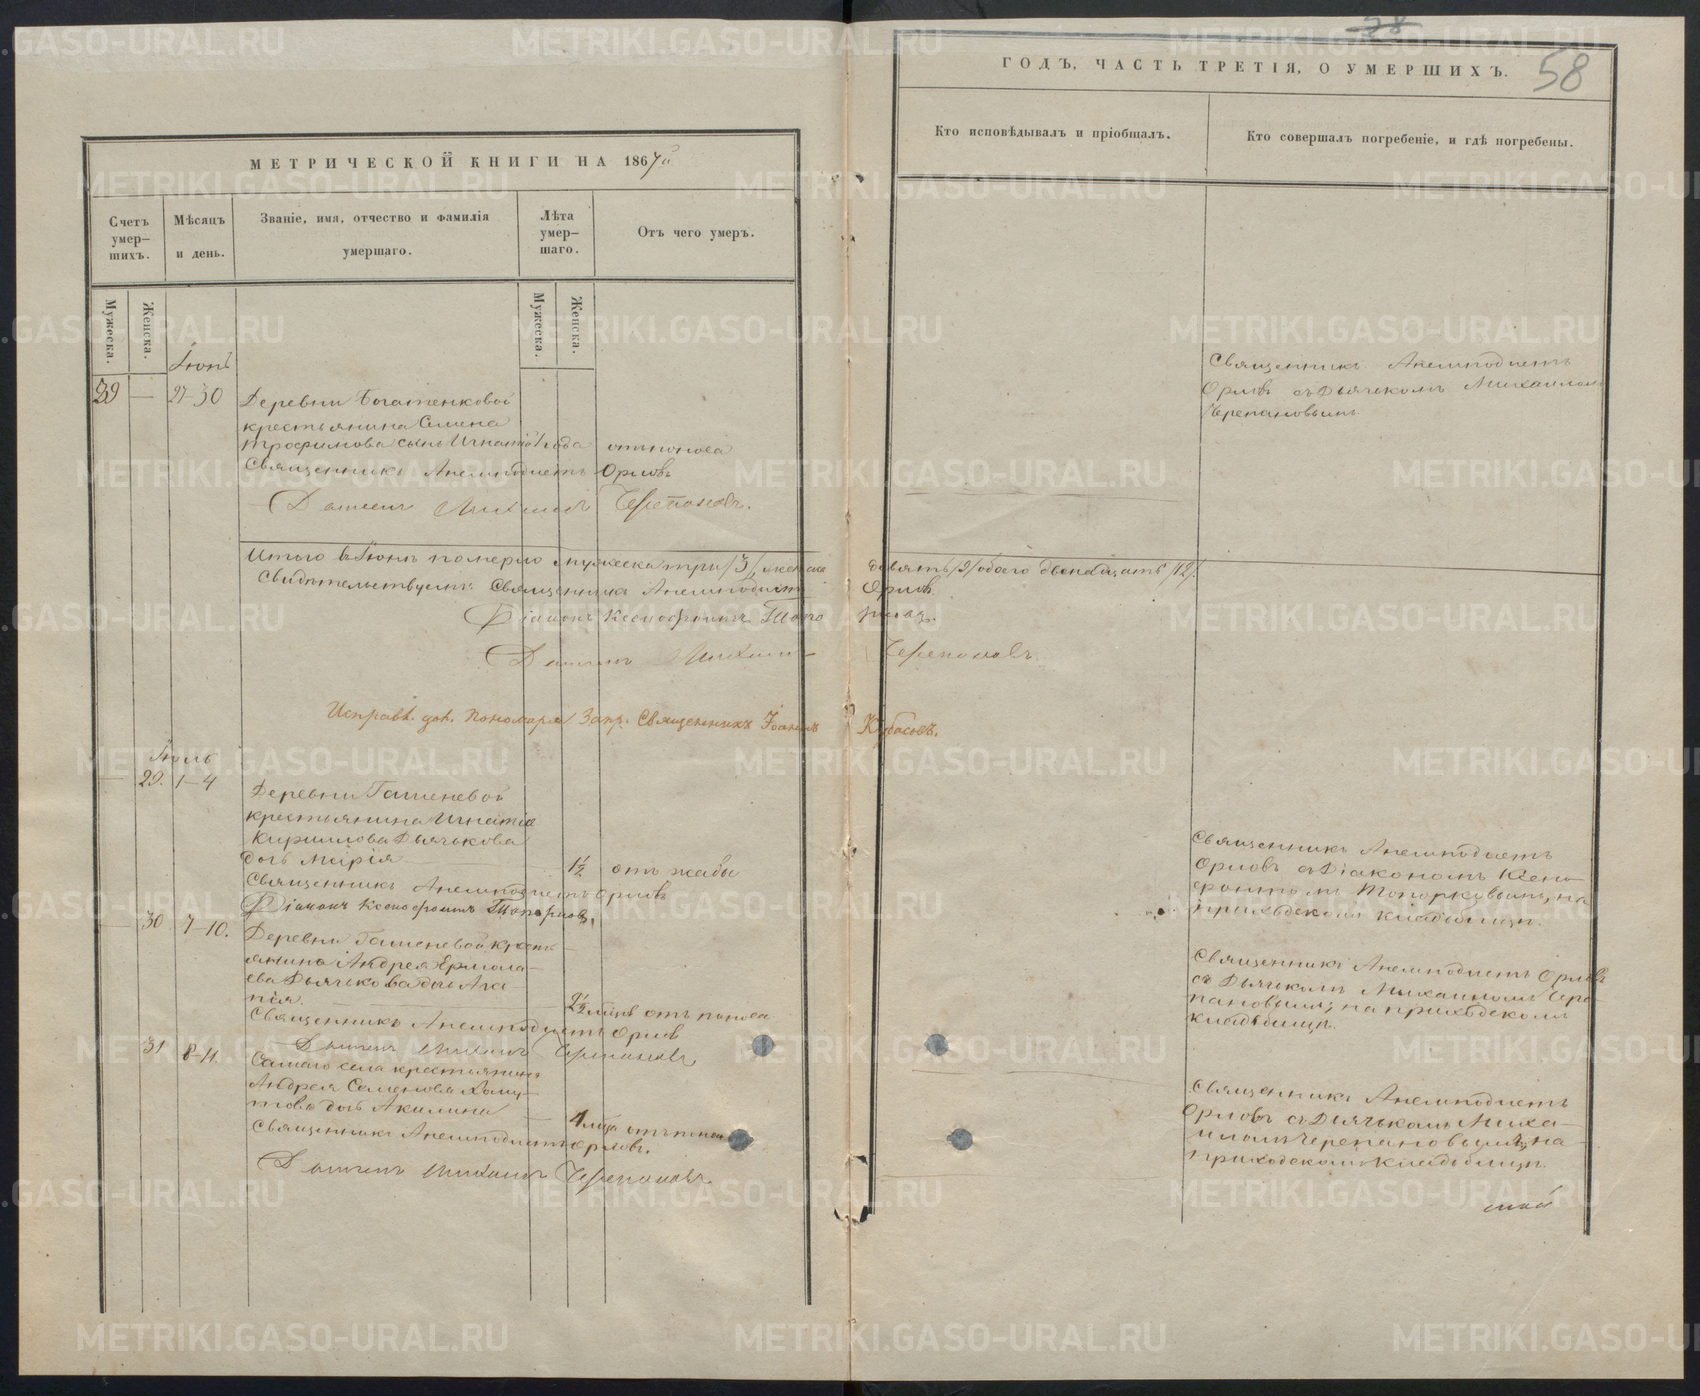 МЕТРИЧЕСКОЙ КНИГИ НА 1867й
Счетъ умер-шихъ.
Мѣсяцъ и день.
Званіе, имя, отчество и фамилія умершаго.
Лѣта умер-шаго.
Отъ чего умеръ.
Мужеска.
Женска.
Мужеска.
Женска.
Іюнь
39 — 27-30 Деревни Богатенковой
крестьянина Семена
Трофимова сынъ Игнатій 1 года отъ поноса
Священникъ Анемподистъ Орловъ
Дьячекъ Михаилъ Черепановъ.
Итого въ Іюнѣ померло мужеска три /3/, женска
Свидѣтельствуемъ: Священникъ Анемподистъ
Діаконъ Ксенофонтъ Топо
Дьячекъ Михаилъ
Исправл. дол. Пономаря Запр. Священникъ Іоаннъ
Іюль
— 29. 1-4 Деревни Гашеневой
крестьянина Игнатія
Кириллова Дьячкова
дочь Марія — 1½ отъ жабы
Священникъ Анемподистъ Орловъ
Діаконъ Ксенофонтъ Топорковъ.
— 30 7-10. Деревни Гашеневой кресть
янина Андрея Ермола-
ева Дьячкова дочь Ага-
пія. — 2½ мѣсъ отъ поноса
Священникъ Анемподистъ Орловъ
Дьячекъ Михаилъ Черепановъ
31 8-11. Самаго села крестьянина
Андрея Семенова
дочь Акилина —
Священникъ Анемподистъ Орловъ.
Дьячекъ Михаилъ Черепановъ.
58
ГОДЪ, ЧАСТЬ ТРЕТІЯ, О УМЕРШИХЪ.
Кто исповѣдывалъ и пріобщалъ.
Кто совершалъ погребеніе, и гдѣ погребены.
Священникъ Анемподистъ
Орловъ съ Дьячкомъ Михаиломъ
Черепановымъ
девять /9/ обоего двенадцать /12/.
Орловъ
рковъ.
Черепановъ.
Кубасовъ.
Священникъ Анемподистъ
Орловъ съ Діакономъ Ксено-
фонтомъ Топорковымъ, на
приходскомъ кладбищѣ.
Священникъ Анемподистъ Орловъ
съ Дьячкомъ Михаиломъ Чере
пановымъ, на приходскомъ
кладбищѣ.
Священникъ Анемподистъ
Орловъ съ Дьячкомъ Миха-
иломъ Черепановымъ, на
приходскомъ кладбищѣ.
METRIKI.GASO-URAL.RU